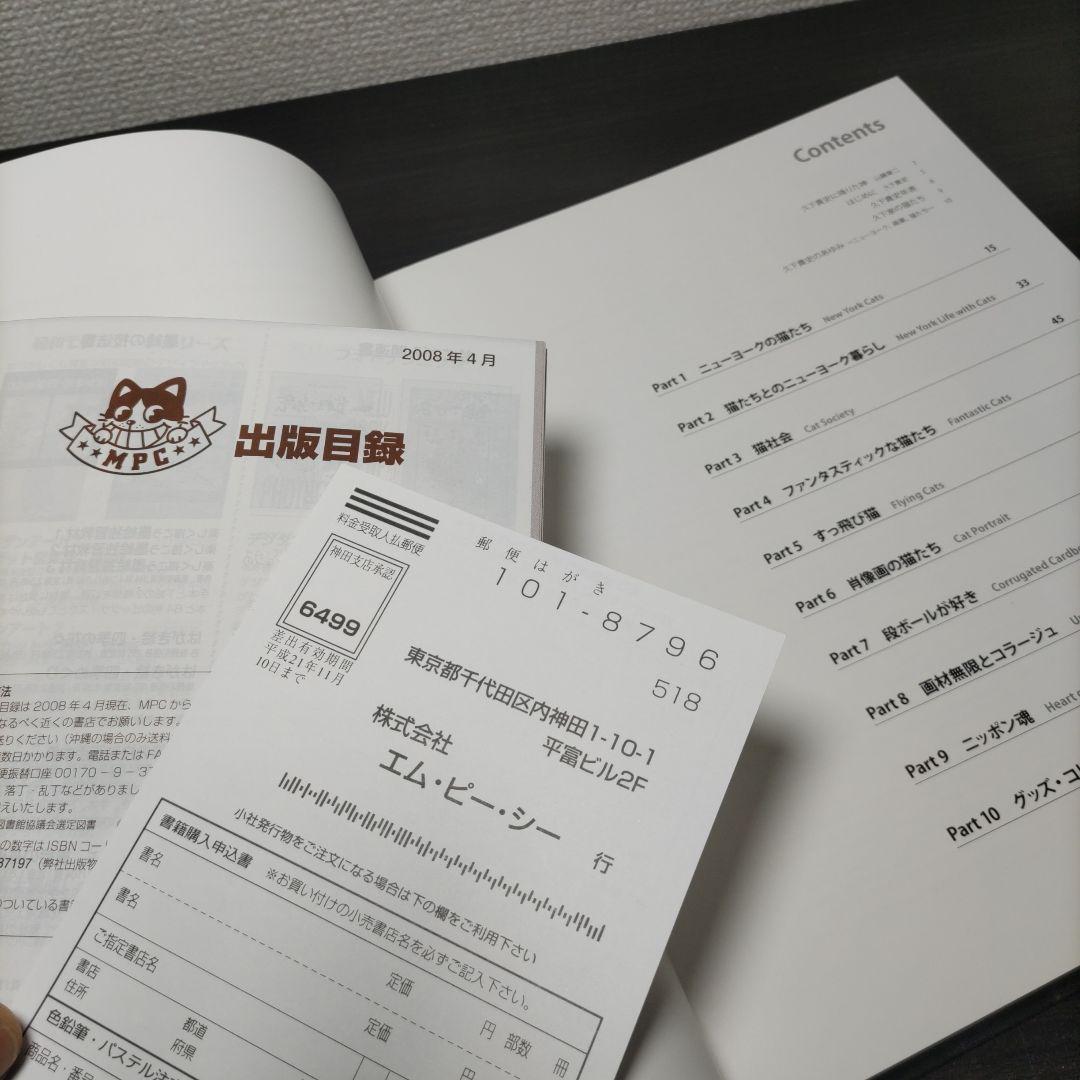 2008年4月
MPC
出版目録
法
目録は2008年4月現在、MPCから
なるべく近くの書店でお願いします。
送りください（沖縄の場合のみ送料
数日かかります。電話またはFA
便振替口座00170－9－37
落丁・乱丁などがありまし
えいたします。
図書館協議会選定図書
の数字はISBNコー
37197（弊社出版物
のついている書
料金受取人払郵便
神田支店承認
6499
差出有効期間
平成21年11月
10日まで
郵便はがき
101-8796
518
東京都千代田区内神田1-10-1
平富ビル2F
株式会社
エム・ピー・シー
行
小社発行物をご注文になる場合は下の欄をご利用下さい
書籍購入申込書 ※お買い付けの小売書店名を必ずご記入下さい。
書名
定価
円
部数
冊
書名
定価
円
ご指定書店名
書店
住所
都道
府県
色鉛筆・パステル注
商品名・番
Contents
久下貴史に降りた神
はじめに 久下貴史
久下貴史年表
久下家の猫たち
久下貴史のあゆみ
Part 1 ニューヨークの猫たち New York Cats 15
Part 2 猫たちとのニューヨーク暮らし New York Life with Cats 33
Part 3 猫社会 Cat Society 45
Part 4 ファンタスティックな猫たち Fantastic Cats
Part 5 すっ飛び猫 Flying Cats
Part 6 肖像画の猫たち Cat Portrait
Part 7 段ボールが好き Corrugated Cardb
Part 8 画材無限とコラージュ Un
Part 9 ニッポン魂 Heart
Part 10 グッズ・コレ